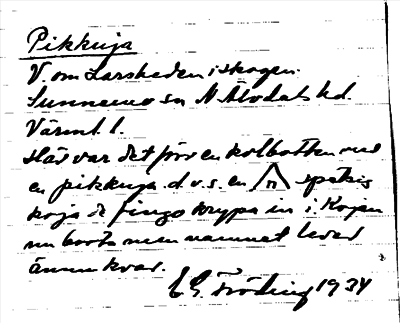 Pikkuja
V. om Larsheden i skogen.
Sunnemo sn N. Älvdals hd.
Värml. l.
Här var det förr en kolbotten med
en pikkuja d.v.s. en /n\ spetsig
koja de fingo krypa in i. Kojan
nu borta men namnet lever
ännu kvar.
E G. Fröding 1934